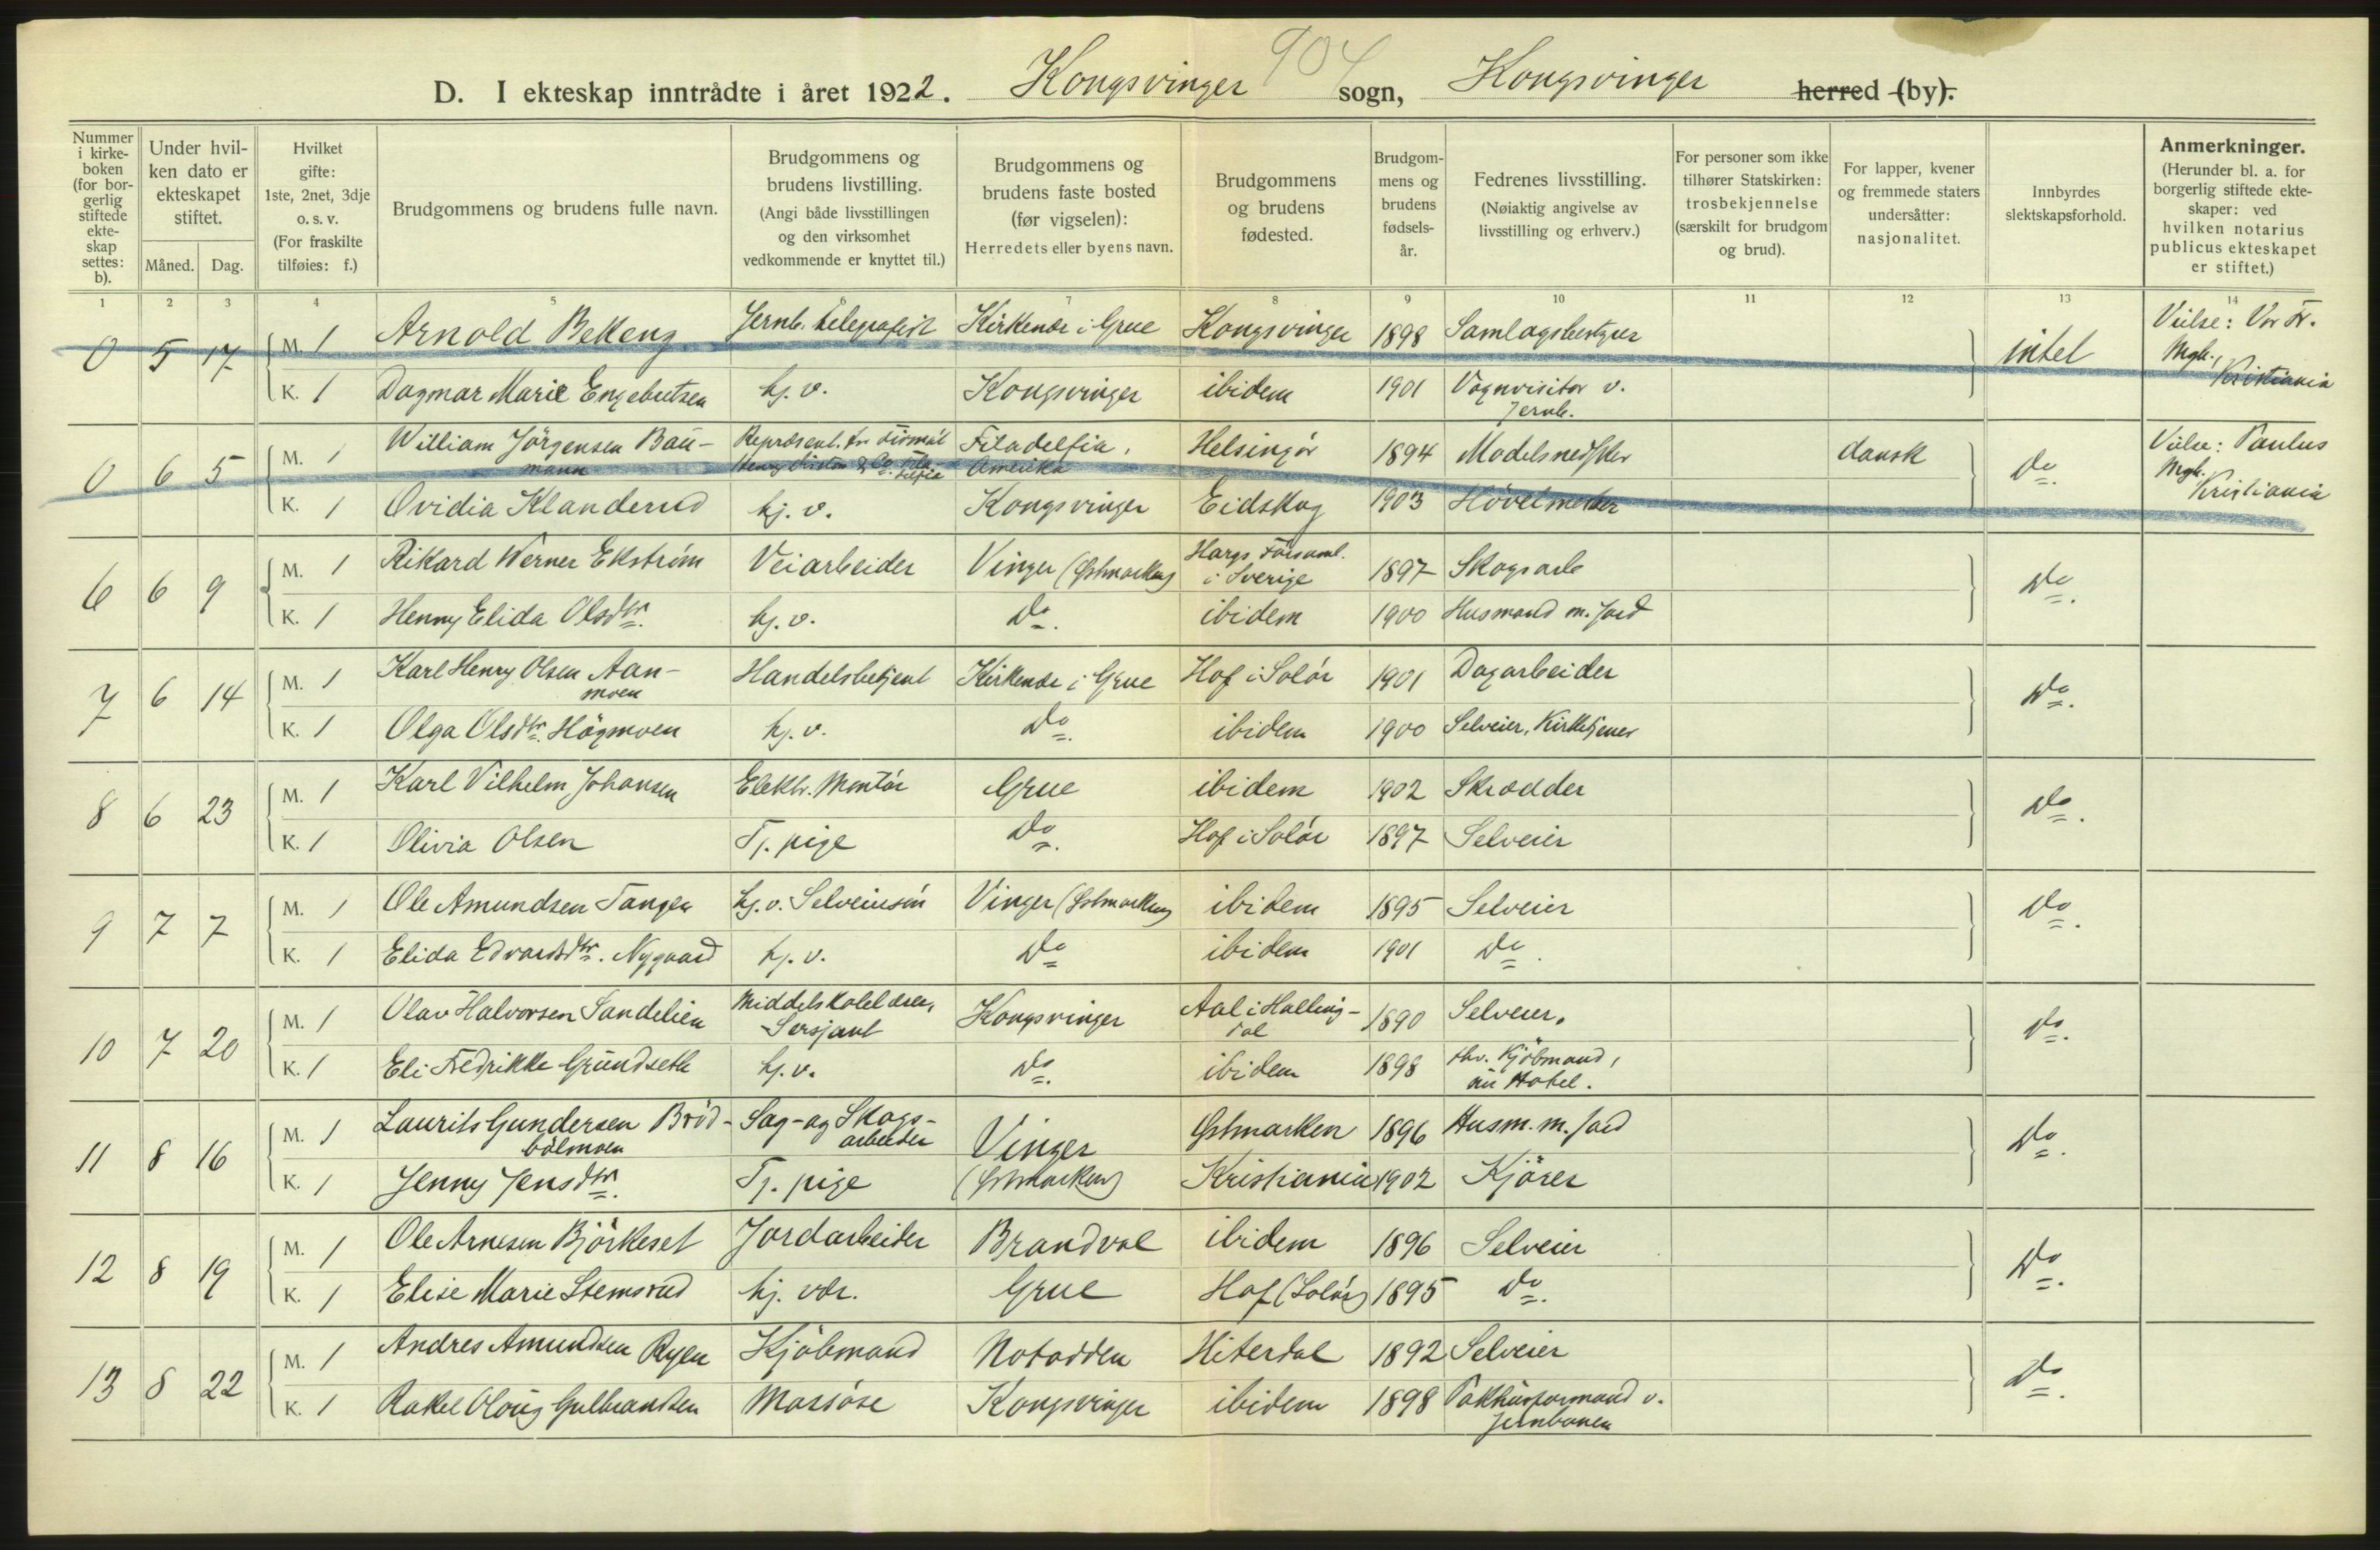 904
D. I ekteskap inntrådte i året 1922. Kongsvinger sogn, Kongsvinger herred (by).
Nummer i kirke-boken (for bor-gerlig stiftede ekte-skap settes: b).
Under hvil-ken dato er ekteskapet stiftet.
Måned. Dag.
Hvilket gifte: 1ste, 2net, 3dje o. s. v. (For fraskilte tilføies: f.)
Brudgommens og brudens fulle navn.
Brudgommens og brudens livstilling. (Angi både livsstillingen og den virksomhet vedkommende er knyttet til.)
Brudgommens og brudens faste bosted (før vigselen): Herredets eller byens navn.
Brudgommens og brudens fødested.
Brudgom-mens og brudens fødsels-år.
Fedrenes livsstilling. (Nøiaktig angivelse av livsstilling og erhverv.)
For personer som ikke tilhører Statskirken: trosbekjennelse (særskilt for brudgom og brud).
For lapper, kvener og fremmede staters undersåtter: nasjonalitet.
Innbyrdes slektskapsforhold.
Anmerkninger. (Herunder bl. a. for borgerlig stiftede ekte-skaper: ved hvilken notarius publicus ekteskapet er stiftet.)
1 2 3 4 5 6 7 8 9 10 11 12 13 14
0 5 17 M. 1 Arnold Bekeng Jernb. telegrafist Kirkenær i Grue Kongsvinger 1898 Samlagsbestyrer intet Vielse: Vor Fr. Mgh., Kristiania
K. 1 Dagmar Marie Engebretsen hj. v. Kongsvinger ibidem 1901 Vognvisitør v. Jernb.
0 6 5 M. 1 William Jörgensen Bau-mann Repræsent. for firmaet Henry & Co. Filadelfia Filadelfia, Amerika Helsingør 1894 Modelsnedker dansk Do. Vielse: Paulus Mgh. Kristiania
K. 1 Ovidia Klanderud hj. v. Kongsvinger Eidskog 1903 Høvelmester
6 6 9 M. 1 Rikard Werner Ekström Veiarbeider Vinger (Østmarken) Hargs Församl. i Sverige 1897 Skogsarb Do.
K. 1 Henny Elida Olsdtr. hj. v. Do. ibidem 1900 Husmand m. jord
7 6 14 M. 1 Karl Henry Olsen Aan-moen Handelsbetjent Kirkenær i Grue Hof i Solør 1901 Dagarbeider Do.
K. 1 Olga Olsdtr. Högmoen hj. v. Do. ibidem 1900 Selveier, Kirketjener
8 6 23 M. 1 Karl Vilhelm Johansen Elektr. Montør Grue ibidem 1902 Skrædder Do.
K. 1 Olivia Olsen Tj. pige Do. Hof i Solør 1897 Selveier
9 7 7 M. 1 Ole Amundsen Tangen hj. v. Selveiersøn Vinger (Østmarken) ibidem 1895 Selveier Do.
K. 1 Elida Edvardsdtr. Nygaard hj. v. Do ibidem 1901 Do.
10 7 20 M. 1 Olav Halvorsen Sandelien Middelskolelærer, Sersjant Kongsvinger Aal i Halling-dal 1890 Selveier. Do.
K. 1 Eli Fredrikke Grundseth hj. v. Do. ibidem 1898 fhv. Kjöbmand, nu Hotel.
11 8 16 M. 1 Laurits Gundersen Bröd-bölmoen Sag- og Skogs-arbeider Vinger (Østmarken) Østmarken 1896 Husm. m. jord Do.
K. 1 Jenny Jensdtr. Tj. pige Kristiania 1902 Kjörer
12 8 19 M. 1 Ole Arnesen Björkeset Jordarbeider Brandval ibidem 1896 Selveier Do.
K. 1 Elise Marie Stemsrud hj. vær. Grue Hof (Solør) 1895 Do.
13 8 22 M. 1 Andres Amundsen Ryen Kjöbmand Notodden Hiterdal 1892 Selveier Do.
K. 1 Rakel Oloug Gulbrandsen Massøse Kongsvinger ibidem 1898 Pakhusformand v. Jernbanen